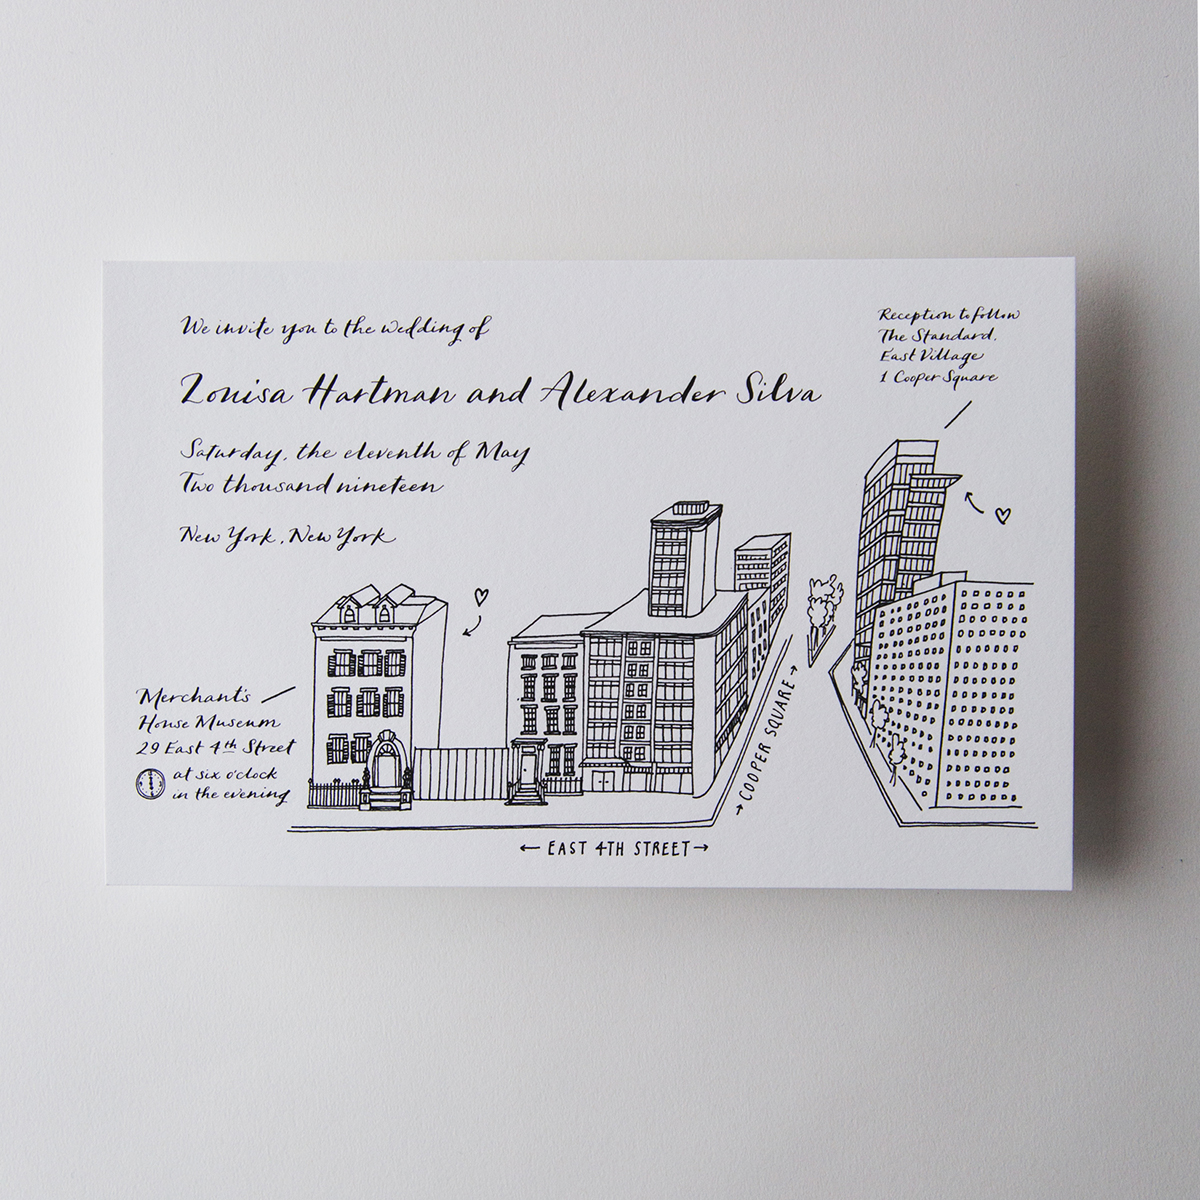 We invite you to the wedding of
Louisa Hartman and Alexander Silva
Saturday, the eleventh of May
Two thousand nineteen
New York, New York
Reception to follow
The Standard,
East Village
1 Cooper Square
Merchant's
House Museum
29 East 4th Street
at six o'clock
in the evening
→ COOPER SQUARE →
← EAST 4TH STREET →